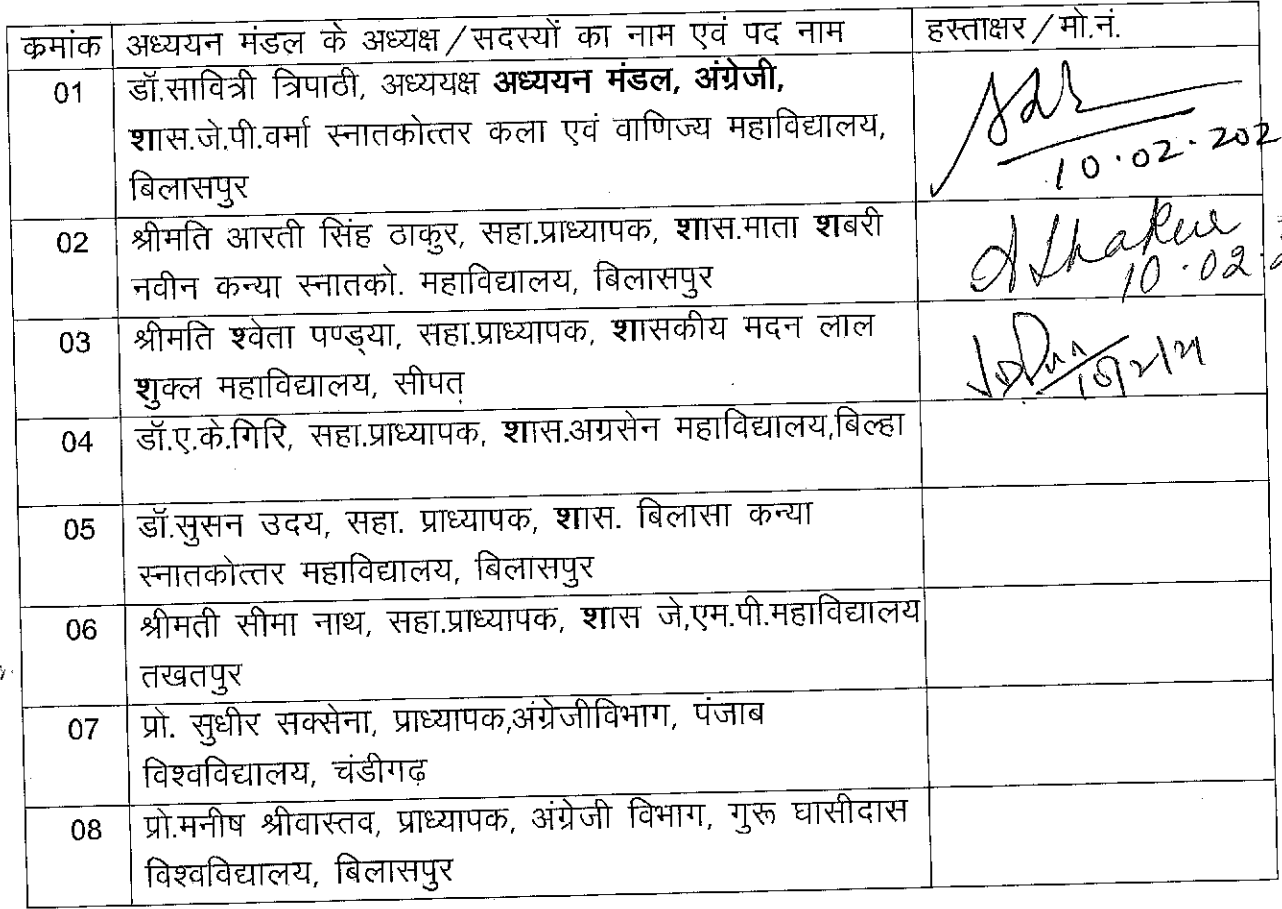 क्रमांक अध्ययन मंडल के अध्यक्ष/सदस्यों का नाम एवं पद नाम हस्ताक्षर/मो.नं.
01 डॉ.सावित्री त्रिपाठी, अध्ययक्ष अध्ययन मंडल, अंग्रेजी,
शास.जे.पी.वर्मा स्नातकोत्तर कला एवं वाणिज्य महाविद्यालय,
10.02.202
बिलासपुर
02 श्रीमति आरती सिंह ठाकुर, सहा.प्राध्यापक, शास.माता शबरी AThakur
नवीन कन्या स्नातको. महाविद्यालय, बिलासपुर 10.02.2
03 श्रीमति श्वेता पण्ड्या, सहा.प्राध्यापक, शासकीय मदन लाल
शुक्ल महाविद्यालय, सीपत 10/2/21
04 डॉ.ए.के.गिरि, सहा.प्राध्यापक, शास.अग्रसेन महाविद्यालय,बिल्हा
05 डॉ.सुसन उदय, सहा. प्राध्यापक, शास. बिलासा कन्या
स्नातकोत्तर महाविद्यालय, बिलासपुर
06 श्रीमती सीमा नाथ, सहा.प्राध्यापक, शास जे,एम.पी.महाविद्यालय
तखतपुर
07 प्रो. सुधीर सक्सेना, प्राध्यापक,अंग्रेजीविभाग, पंजाब
विश्वविद्यालय, चंडीगढ़
08 प्रो.मनीष श्रीवास्तव, प्राध्यापक, अंग्रेजी विभाग, गुरू घासीदास
विश्वविद्यालय, बिलासपुर